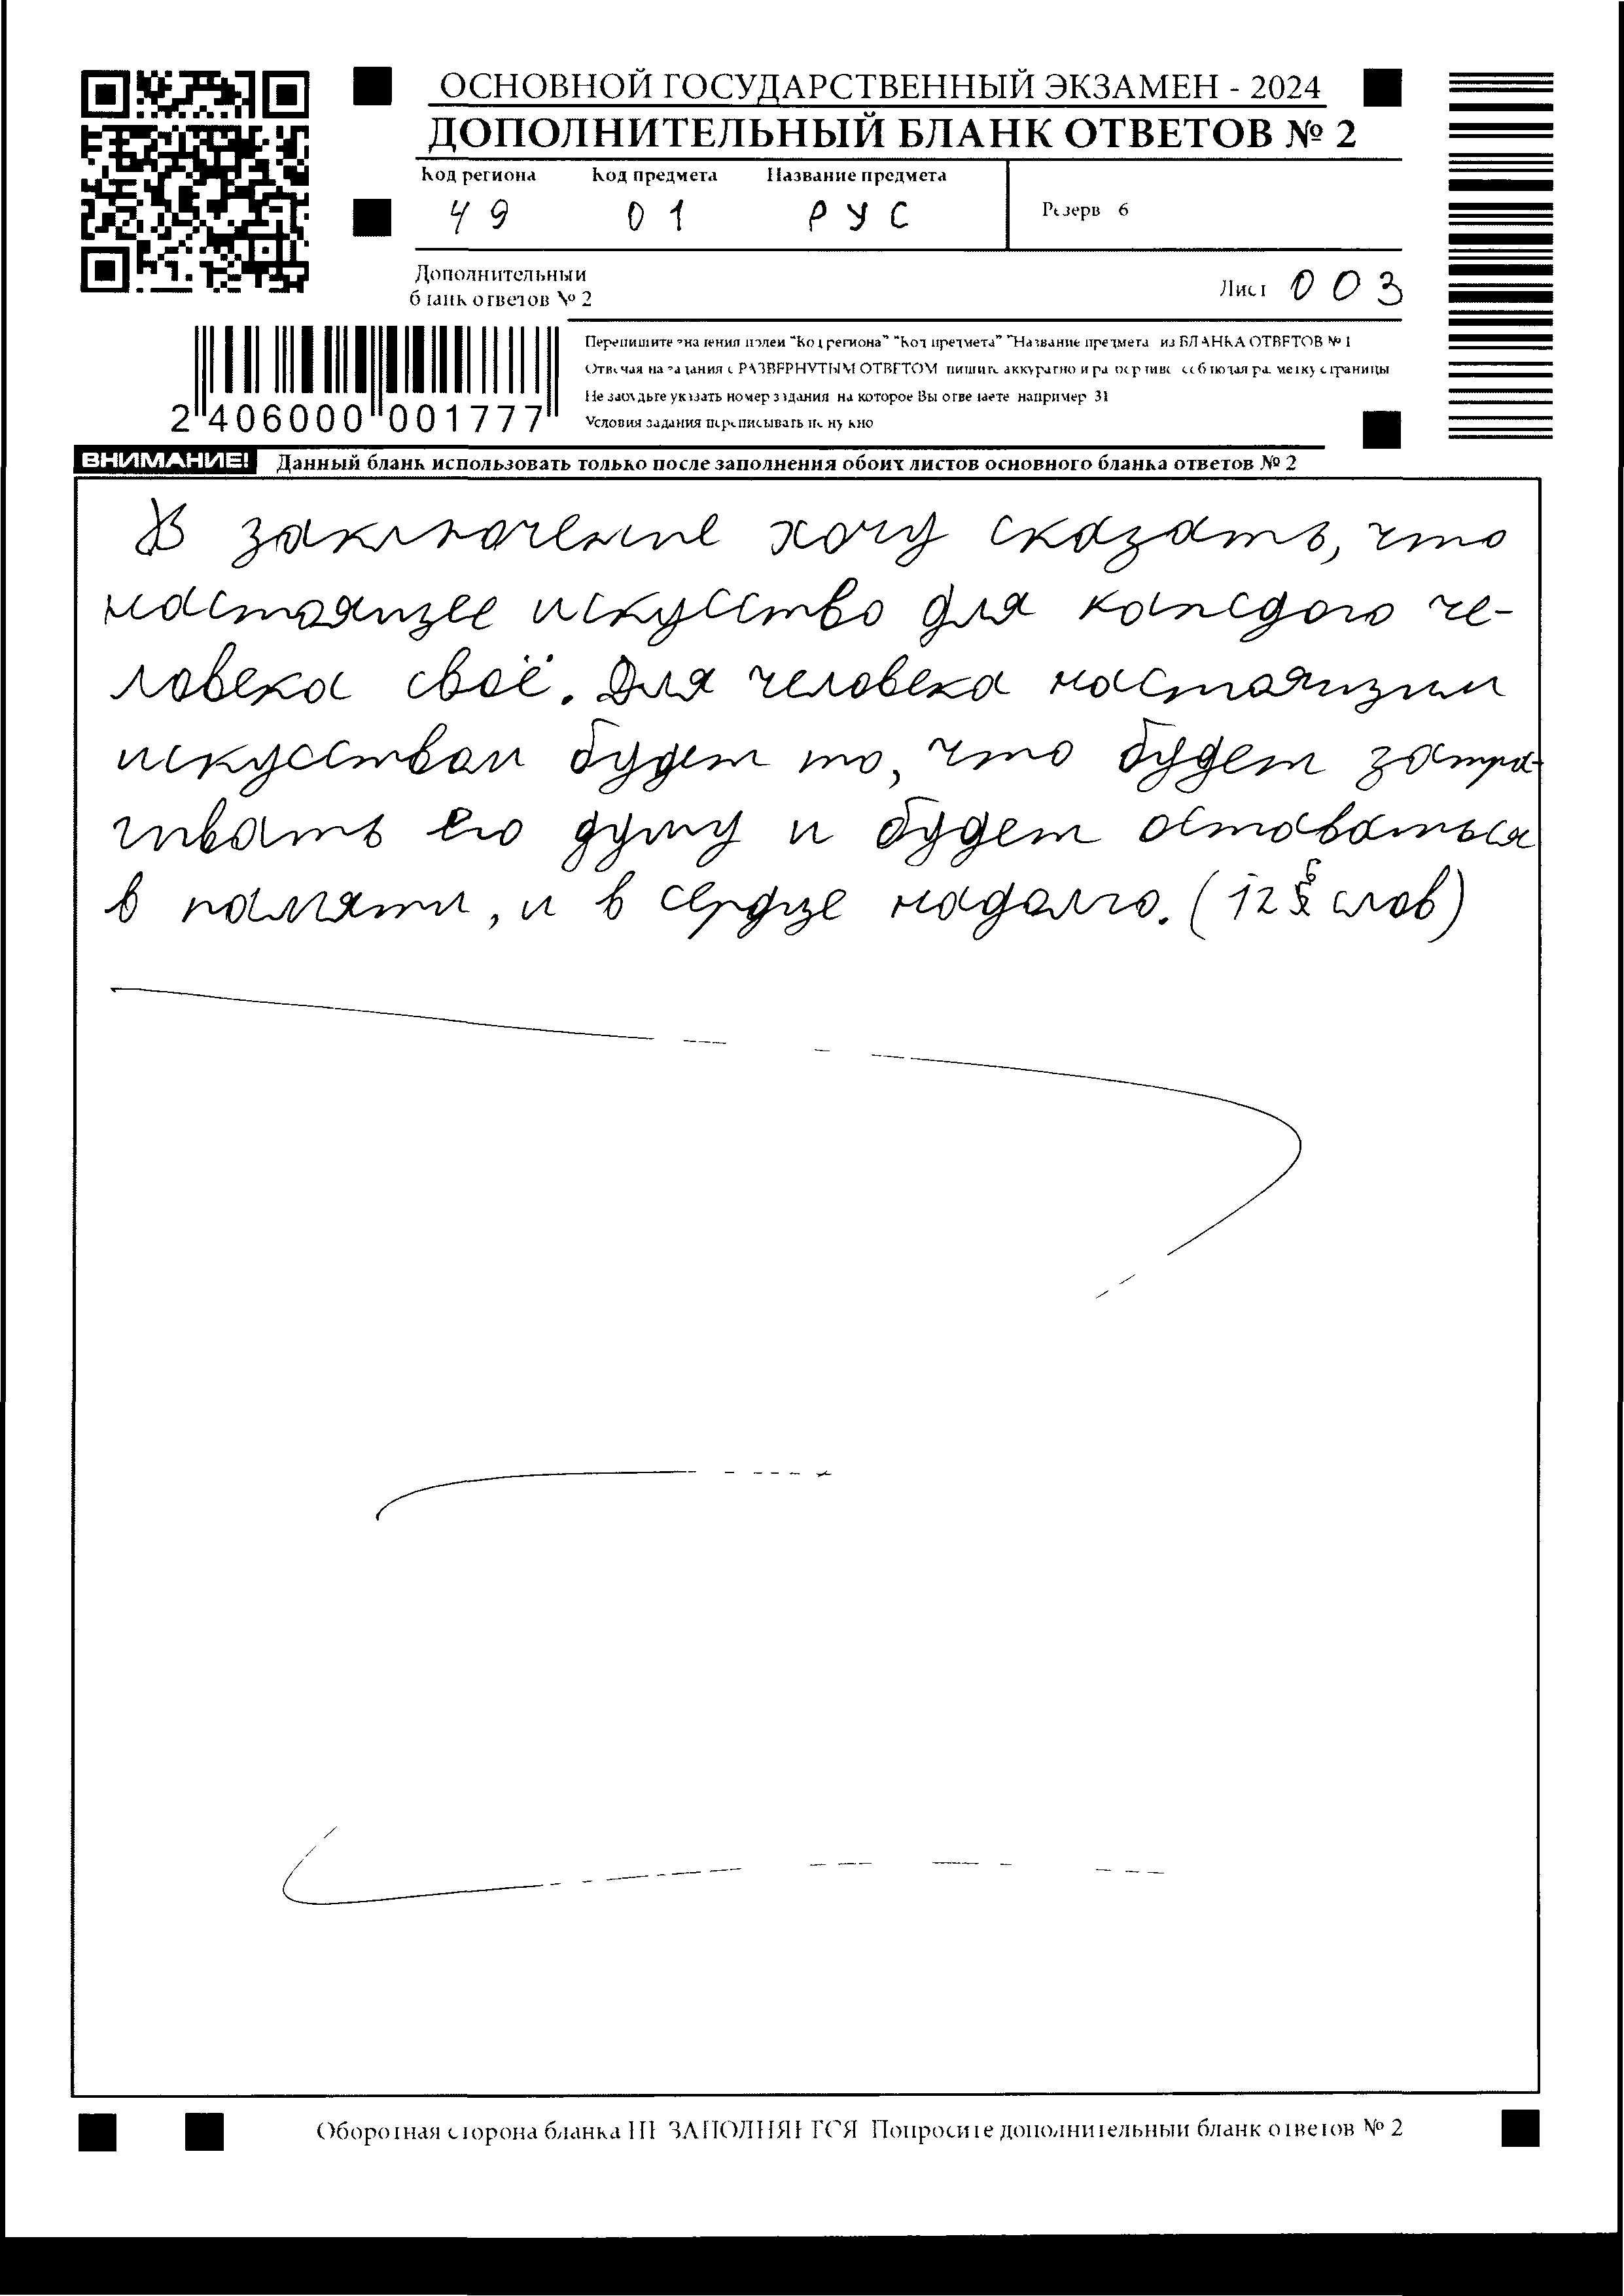 ОСНОВНОЙ ГОСУДАРСТВЕННЫЙ ЭКЗАМЕН - 2024
ДОПОЛНИТЕЛЬНЫЙ БЛАНК ОТВЕТОВ № 2
Код региона Код предмета Название предмета
49 01 РУС
Резерв 6
Дополнительный
бланк ответов № 2
Лист 003
Перепишите значения полей "Код региона" "Код предмета" "Название предмета" из БЛАНКА ОТВЕТОВ № 1
Отвечая на задания с РАЗВЕРНУТЫМ ОТВЕТОМ пишите аккуратно и разборчиво соблюдая разметку страницы
Не забудьте указать номер задания на которое Вы отвечаете например 31
Условия задания переписывать не нужно
2 406000 001777
ВНИМАНИЕ! Данный бланк использовать только после заполнения обоих листов основного бланка ответов № 2
В заключение хочу сказать, что
настоящее искусство для каждого че-
ловека своё. Для человека настоящим
искусством будет то, что будет затра-
гивать его душу и будет оставаться
в памяти, и в сердце надолго. (12 слов)
Оборотная сторона бланка НЕ ЗАПОЛНЯЕТСЯ Попросите дополнительный бланк ответов № 2